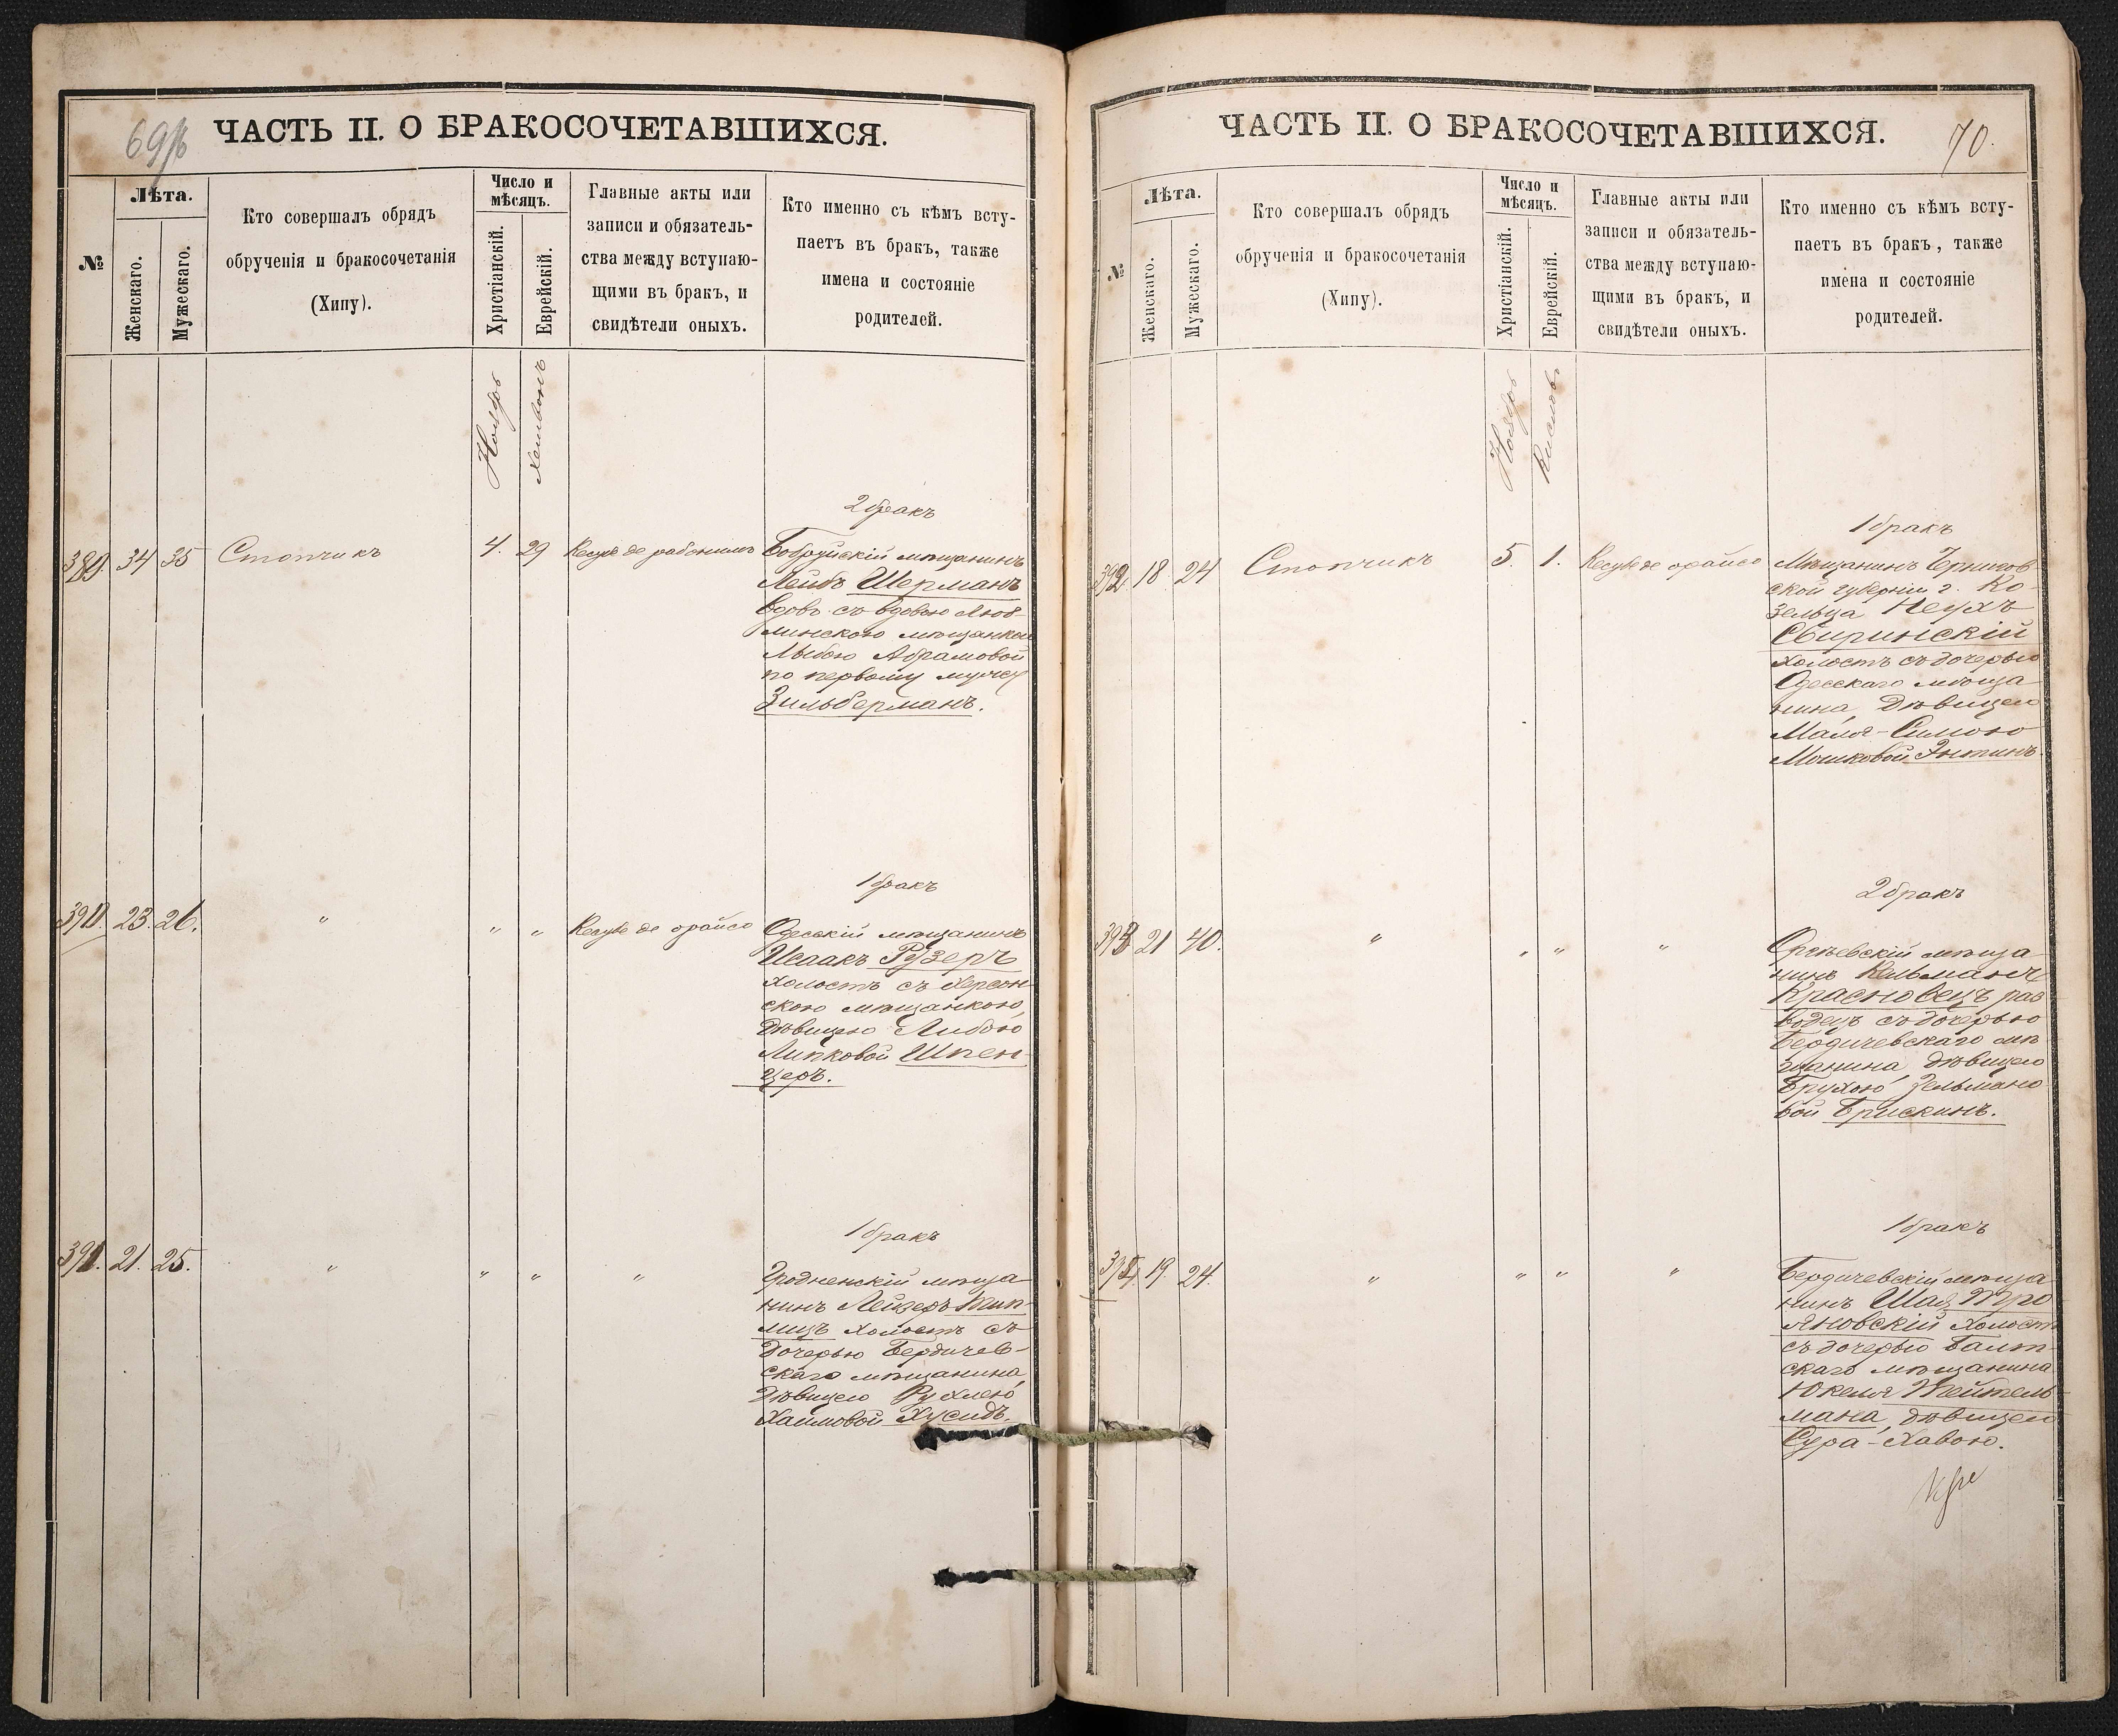 69/б
ЧАСТЬ II. О БРАКОСОЧЕТАВШИХСЯ.
№
Лѣта.
Женскаго.
Мужескаго.
Кто совершалъ обрядъ
обрученія и бракосочетанія
(Хипу).
Число и
мѣсяцъ.
Христіанскій.
Еврейскій.
Главные акты или
записи и обязатель-
ства между вступаю-
щими въ бракъ, и
свидѣтели оныхъ.
Кто именно съ кѣмъ всту-
паетъ въ бракъ, также
имена и состояніе
родителей.
Ноябрь
Хешвонъ
2 бракъ
389. 34 35 Стопчикъ 4. 29 Кесубе де рабонимъ Бобруйскій мѣщанинъ
Лейбъ Шерманъ
вдовъ съ вдовою Люб-
линскою мѣщанкою
Лыбою Абрамовой
по первому мужу
Зильберманъ.
1 бракъ
390. 23. 26. " " " Кесубе де орайсо Одесскій мѣщанинъ
Исаакъ Рузеръ
холостъ съ Херсон-
скою мѣщанкою,
дѣвицею Либою
Липковой Шпен-
церъ.
1 бракъ
391. 21. 25. " " " " Гродненскій мѣща-
нинъ Лейзеръ
холостъ съ
дочерью Бердичев-
скаго мѣщанина,
дѣвицею Рухлею
Хаимовой Хусидъ.
ЧАСТЬ II. О БРАКОСОЧЕТАВШИХСЯ.
70.
№
Лѣта.
Женскаго.
Мужескаго.
Кто совершалъ обрядъ
обрученія и бракосочетанія
(Хипу).
Число и
мѣсяцъ.
Христіанскій.
Еврейскій.
Главные акты или
записи и обязатель-
ства между вступаю-
щими въ бракъ, и
свидѣтели оныхъ.
Кто именно съ кѣмъ всту-
паетъ въ бракъ, также
имена и состояніе
родителей.
Ноябрь
Кислевъ
1 бракъ
392. 18 24 Стопчикъ 5. 1. Кесубе де орайсо Мѣщанинъ Чернигов
ской губерніи г. Ко-
зельца Неухъ
Свиринскій
холостъ съ дочерью
Одесскаго мѣща-
нина, дѣвицею
Маля-Симою
Мошковой Энтинъ.
2 бракъ
393 21 40. " " " " Оргѣевскій мѣща-
нинъ Кельманъ
Красновецъ раз
водецъ съ дочерью
Бердичевскаго мѣ
щанина, дѣвицею
Брухою Зельмано
вой Брискинъ.
1 бракъ
394. 19. 24. " " " " Бердичевскій мѣща
нинъ Шая Тро
яновскій холостъ
съ дочерью Балт-
скаго мѣщанина
Юкеля Жейтель-
мана, дѣвицею
Сура-Хавою.